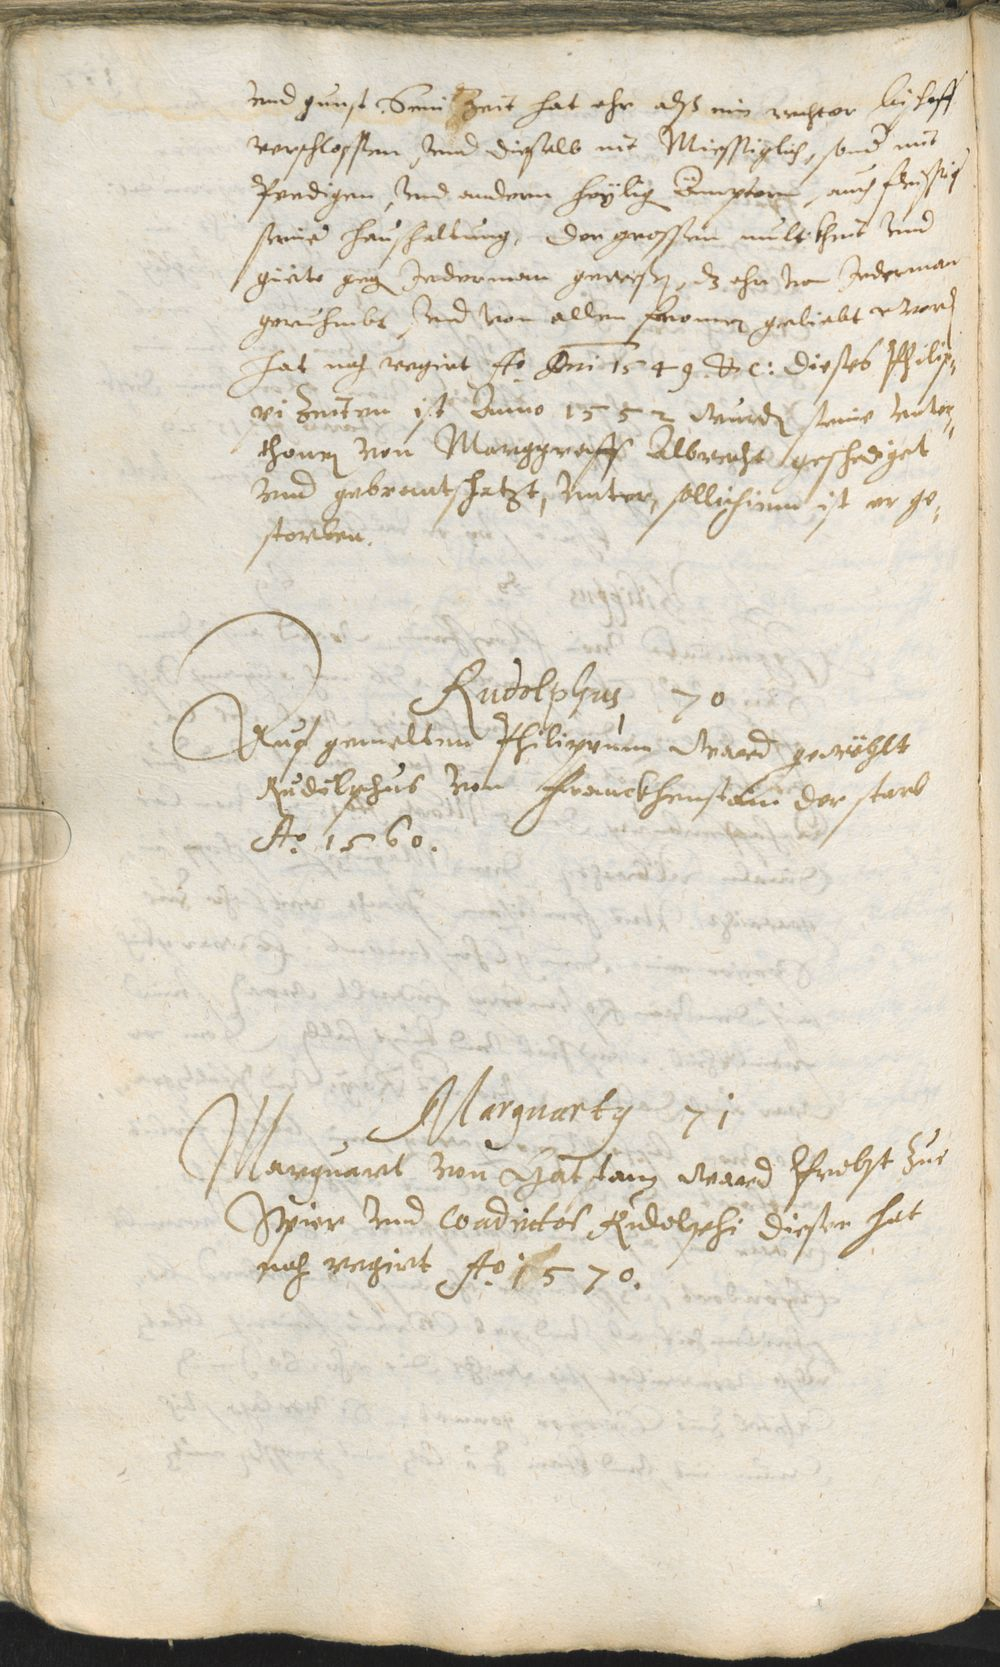 und gunst. Sein Zeit hat ehr alß ein rechter bischoff
verschlossen, und dieselb nit Miessiglich, sond mit
Predigen, und andern heylig Ämptern, auch fleissig
seine haushaltung, der grossen multkheit und
giete geg Jederman gewesen, dz ehr von Jederman
geruhmbt, und von allen fromen geliebt word
hat noch regirt Ao Dni 1549. &c: dieses Philip,,
pi Zeiten ist Anno 1552 wurden seine unter,,
thonen von Marggraff Albrecht geschediget
und gebrantschatzt, unter, sollichem ist er ge,,
storben.
Rudolphus 70
Auf gemelten Philippum ward gewöhlt
Rudolphus von Franckhenstain der starb
Ao. 1560.
Marquarty 71
Marquart von Hatstain ward Probst zue
Speir und Coadiutor Rudolphi dieser hat
noch regirt Ao 1570.